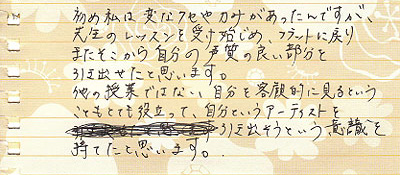 初め私は変なクセや力みがあったんですが、
先生のレッスンを受け始じめ、フラットに戻り
またそこから自分の声質の良い部分を
引き出せたと思います。
他の授業ではない、自分を客観的に見るという
こともとても役立って、自分というアーティストを
引き出そうという意識を
持てたと思います。